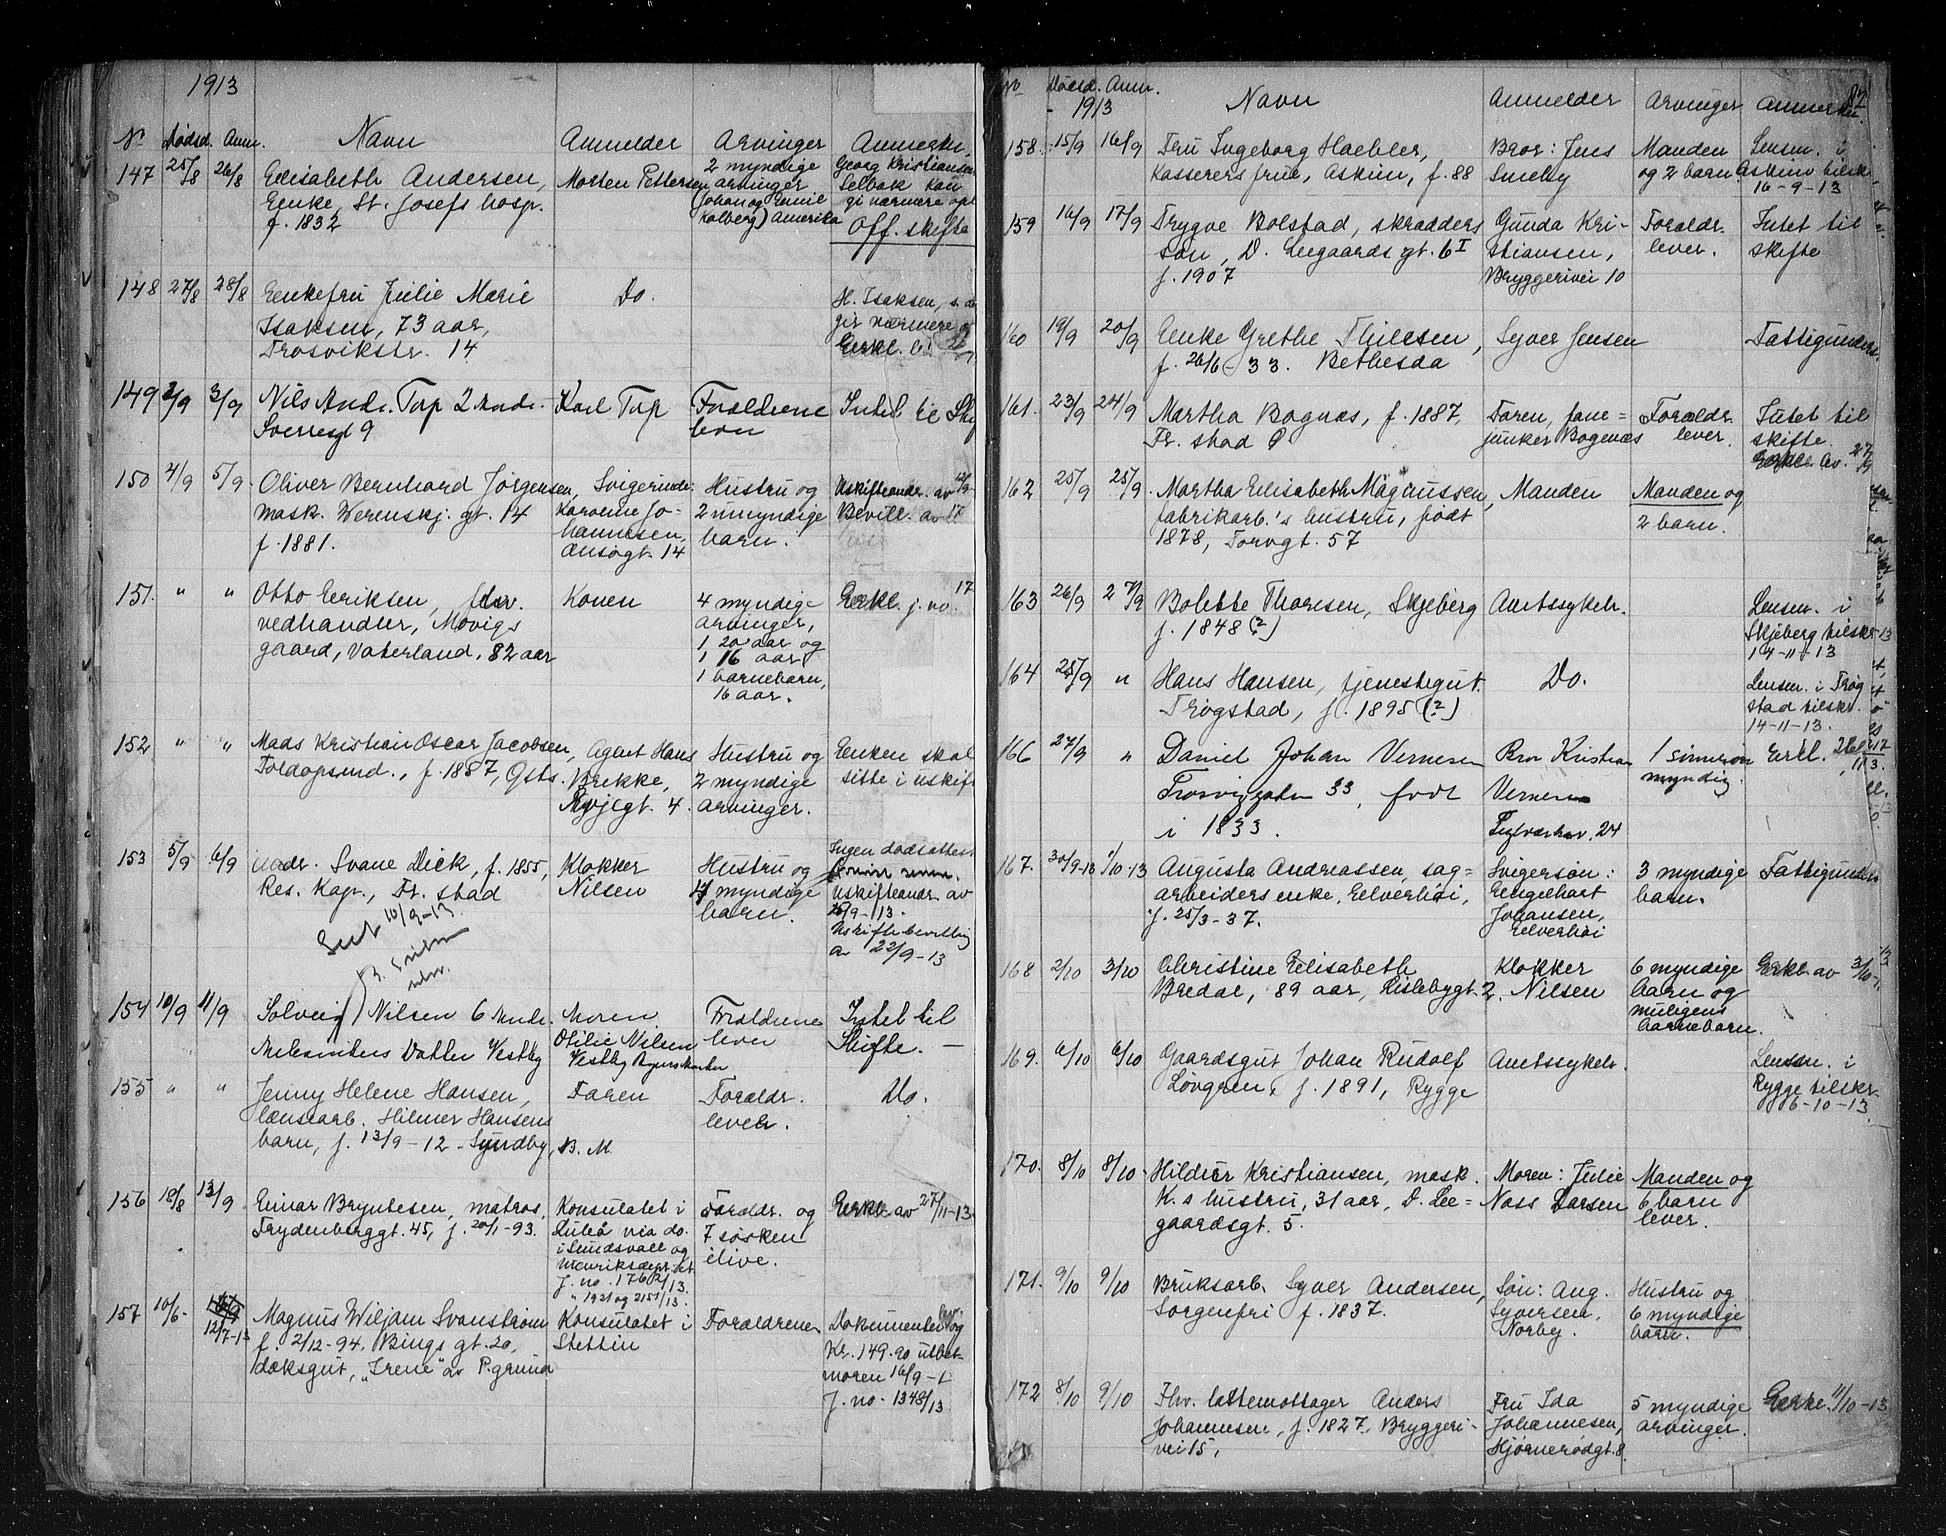 1913
No Dødsd. Anm. Navn Anmelder Arvinger Anmerkn.
147 25/8 26/8 Elisabeth Andersen, Morten Pettersen 2 myndige Georg Kristiansen
Enke, St. Josefs hosp. arvinger Selbak kan
f. 1832 (Johan og Emil gi nærmere opl
Kolberg) Amerika Off. skifte
148 27/8 28/8 Enkefru Julie Marie Do. H. Isaksen,
Isaksen, 73 aar, gir nærmere
Trosvikstr. 14 Erkl.
149 2/9 3/9 Nils Andr. Tap 2 Mndr. Karl Tap Forældrene Intet til Skif
Sverresgt 9 lever
150 4/9 5/9 Oliver Bernhard Jørgensen, Svigerinde: Hustru og Uskifteandr. av 12/9
mask. Werenskj. gt. 14 Karoline Jo- 2 umyndige Bevill. av 17
f. 1881. hannesen, barn.
Ensogt. 14
151. " " Otto Eriksen, Konen 4 myndige Erkl. j. no. 17
vedhandler, Movigs arvinger,
gaard, Vaterland, 82 aar 1, 20 aar og
1 16 aar
1 barnebarn,
16 aar.
152 " " Mads Kristian Oscar Jacobsen, Agent Hans Hustru og Enken skal
Toldopsynd., f. 1857, Gsts. Brekke, 2 myndige sitte i uskift
gt. 4. arvinger.
153 5/9 6/9 Andr. Svane Dick, f. 1855, Klokker Hustru og Ingen dødsattest
Res. Kap., Fr. stad Nilsen 4 myndige
barn. Uskifteandr. av
/9-13.
Uskiftebevilling
av 22/9-13
10/9-13.
154 10/9 11/9 Solveig Nilsen 6 Mndr. Moren Forældrene Intet til
Datter Vestby Otilie Nilsen lever Skifte. —
Vestby
155 " " Jenny Helene Hansen, Faren Forældr. Do.
lænsearb. Hilmar Hansens lever.
barn, f. 13/9-12 - Sundby, B. M.
156 18/8 13/9 Einar Bryntesen, matros, Konsulatet i Forældr. og Erkl. av 27/11-13.
Frydenberggt. 45, f. 20/1-93. Luleå via do. 7 søsken
i Sundsvall og ilive.
utenriksdept. at
J. no. 1762/13.
" 1921 og 2151/13.
157 10/6- 12/7-13 Magnus Wiljam Svanstrøm Konsulatet i Forældrene Dokumenter og
f. 2/12-94. Bings gt. 20, Stettin Kr. 149.90 utbet.
dæksgut, "Irene" av P.grund moren 16/9-1
J. no. 1348/13
No Dødsd. Anm. Navn Anmelder Arvinger Anmerkn. 82
- 1913
158. 15/9 16/9 Fru Ingeborg Haebler, Bror: Jens Manden Lensm. i
Kasserers frue, Askim, f. 88 Smeby og 2 barn Askim tilskr.
16-9-13
159 16/9 17/9 Trygve Bolstad, skrædders Gunda Kri- Forældr. Intet til
søn, D. Leegaards gt. 6 I stiansen, lever. skifte
f. 1907 Bryggerivei 10
160 19/9 20/9 Enke Grethe Thilesen, Syver Jensen Fattigunders.
f. 26/6-33. Bethesda
161. 23/9 24/9 Martha Bognæs, f. 1887, Faren, fane= Forældr. Intet til
Fr. stad Ø junker Bogenæs lever. skifte.
162 25/9 25/9 Martha Elisabeth Magnussen, Manden Manden og Erkl. av. 27/9
fabrikarb.'s hustru, født 2 barn.
1878, Torvgt. 57
163 26/9 27/9 Bolette Thoresen, Skjeberg Amtssykeh. Lensm. i
f. 1848 (?) Skjeberg tilskr.
14-11-13
164 25/9 " Hans Hansen, tjenestegut. Do. Lensm. i Trøg
Trøgstad, f. 1895 (?) stad tilskr.
14-11-13.
166 27/9 " Daniel Johan Vernesen Bror Kristian 1 sinnesvn Erkl.
Trosvikgaten 33, født Vernesen myndig.
i 1833. 24
167. 30/9-13 1/10-13 Augusta Andreassen, sag= Svigersøn: 3 myndige Fattigunders
arbeiders enke, Elverhøi, Engelhart barn.
f. 25/3-37. Johansen,
Elverhøi
168 2/10 3/10 Christine Elisabeth Klokker 6 myndige Erkl. av 3/10-13
Bredal, 89 aar, Kislebygt. 2. Nilsen barn og
muligens
barnebarn.
169. 6/10 6/10 Gaardsgut Johan Rudolf Amtssykeh. Lensm. i
Løvgren, f. 1891, Rygge Rygge tilskr.
6-10-13
170. 8/10 8/10. Hildur Kristiansen, mask. Moren: Julie Manden og
K.s hustru, 31 aar, D. Lee= Næss Larsen 6 barn
gaardsgt. 5. lever.
171. 9/10 9/10 Bruksarb. Syver Andersen, Søn: Aug. Hustru og
Sorgenfri f. 1837. Syversen, 6 myndige
Norby. barn.
172 8/10 9/10 Fhv. lattemottager Anders Fru Ida 5 myndige Erkl. 11/10-13
Johannesen, f. 1827, Bryggeri- Johannesen, arvinger.
vei 15, Hjørnerødgt. 8.